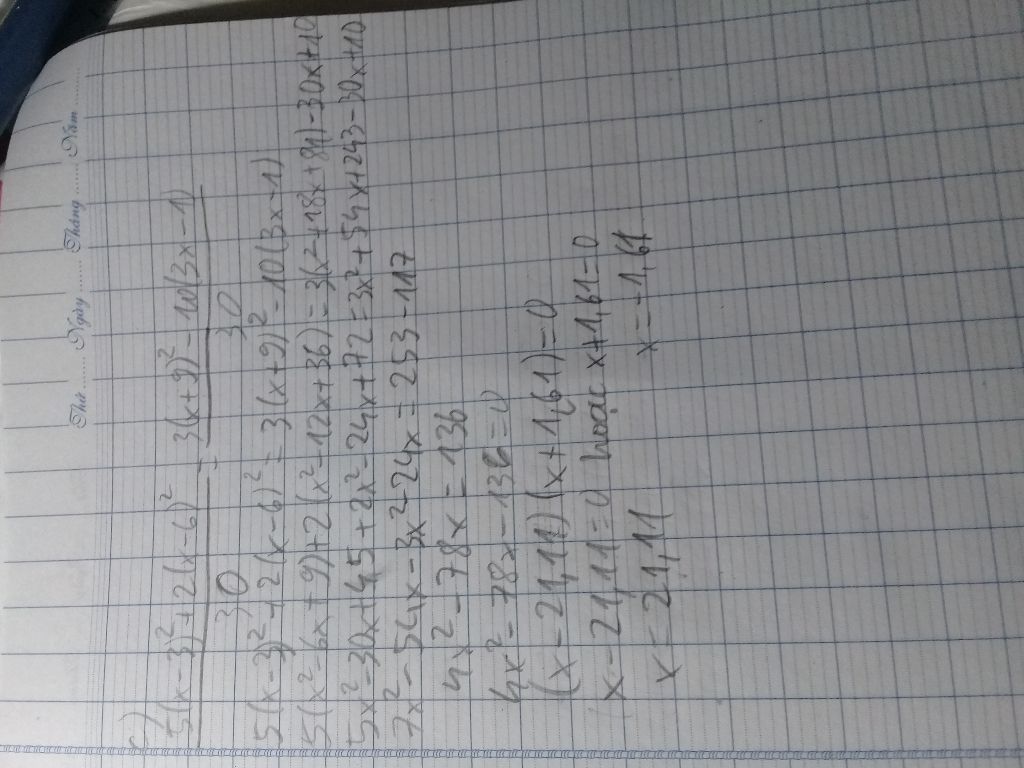 Thứ ........ Ngày ........ Tháng ........ Năm ........
c)
5(x-3)² + 2(x-6)² / 30 = 3(x+9)² - 10(3x-1) / 30
5(x-3)² + 2(x-6)² = 3(x+9)² - 10(3x-1)
5(x²-6x+9)+2(x²-12x+36) = 3(x²+18x+81)-30x+10
5x²-30x+45+2x²-24x+72=3x²+54x+243-30x+10
7x²-54x-3x²-24x = 253-117
4x²-78x=136
4x²-78x-136=0
(x-21,11)(x+1,61)=0
x-21,11=0 hoặc x+1,61=0
x=21,11 x=-1,61